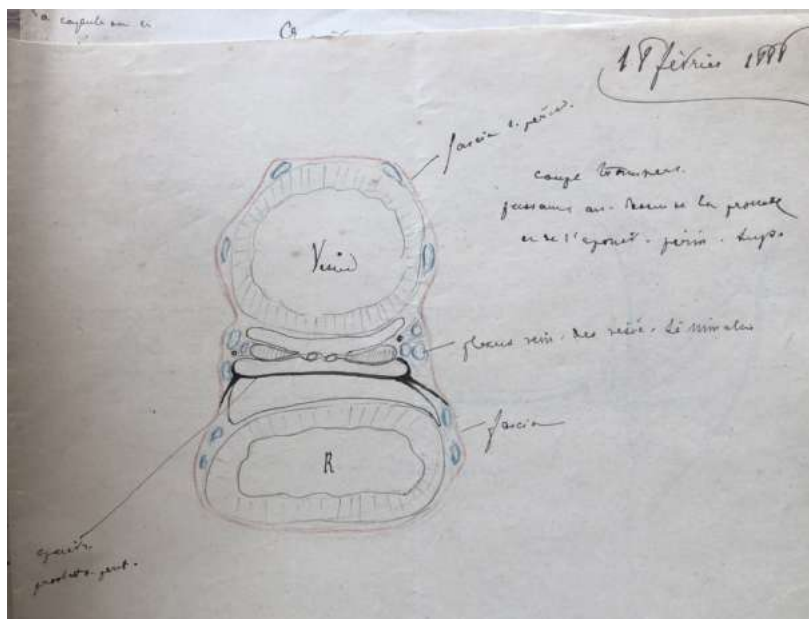 18 février 1888
fascia s. périt.
coupe transvers.
passant au-dessus de la prostate
et de l'aponév. périn. sup.
Vessie
plexus vein. des vésic. séminales
fascia
R
aponév.
prostato-périt.